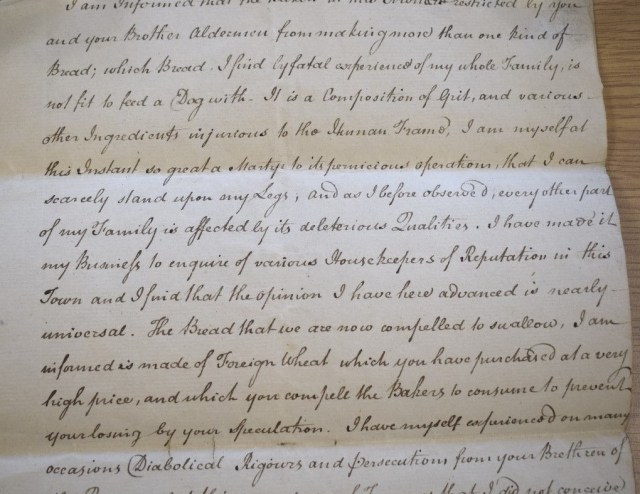 I am Informed that the Bakers in this Town are restricted by you
and your Brother Aldermen from making more than one kind of
Bread; which Bread I find by fatal experience of my whole Family, is
not fit to feed a Dog with. It is a Composition of Grit, and various
other Ingredients injurious to the Human Frame, I am myself at
this Instant so great a Martyr to its pernicious operations, that I can
scarcely stand upon my Legs; and as I before observed, every other part
of my Family is affected by its deleterious Qualities. I have made it
my Business to enquire of various Housekeepers of Reputation in this
Town and I find that the opinion I have here advanced is nearly
universal. The Bread that we are now compelled to swallow, I am
informed is made of Foreign Wheat which you have purchased at a very
high price, and which you compell the Bakers to consume to prevent
your losing by your Speculation. I have myself experienced on many
occasions Diabolical Rigours and Persecutions from your Brethren of
that I did not conceive